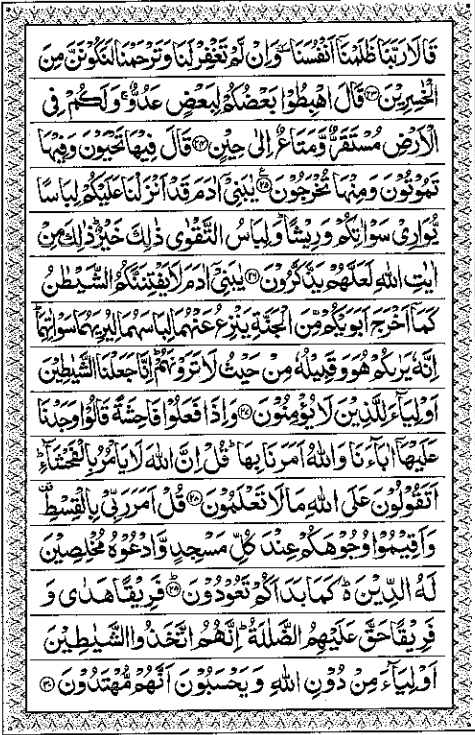 قَالَا رَبَّنَا ظَلَمْنَاۤ اَنْفُسَنَا ٚ وَاِنْ لَّمْ تَغْفِرْ لَنَا وَتَرْحَمْنَا لَنَكُوْنَنَّ مِنَ
الْخٰسِرِيْنَ ﴿۲۳﴾ قَالَ اهْبِطُوْا بَعْضُكُمْ لِبَعْضٍ عَدُوٌّ ۚ وَلَكُمْ فِى
الْاَرْضِ مُسْتَقَرٌّ وَّمَتَاعٌ اِلٰى حِيْنٍ ﴿۲۴﴾ قَالَ فِيْهَا تَحْيَوْنَ وَفِيْهَا
تَمُوْتُوْنَ وَمِنْهَا تُخْرَجُوْنَ ﴿۲۵﴾ يٰبَنِىْۤ اٰدَمَ قَدْ اَنْزَلْنَا عَلَيْكُمْ لِبَاسًا
يُّوَارِىْ سَوْاٰتِكُمْ وَرِيْشًا ؕ وَلِبَاسُ التَّقْوٰى ذٰلِكَ خَيْرٌ ؕ ذٰلِكَ مِنْ
اٰيٰتِ اللّٰهِ لَعَلَّهُمْ يَذَّكَّرُوْنَ ﴿۲۶﴾ يٰبَنِىْۤ اٰدَمَ لَا يَفْتِنَنَّكُمُ الشَّيْطٰنُ
كَمَاۤ اَخْرَجَ اَبَوَيْكُمْ مِّنَ الْجَنَّةِ يَنْزِعُ عَنْهُمَا لِبَاسَهُمَا لِيُرِيَهُمَا سَوْاٰتِهِمَا ؕ
اِنَّهٗ يَرٰىكُمْ هُوَ وَقَبِيْلُهٗ مِنْ حَيْثُ لَا تَرَوْنَهُمْ ؕ اِنَّا جَعَلْنَا الشَّيٰطِيْنَ
اَوْلِيَآءَ لِلَّذِيْنَ لَا يُؤْمِنُوْنَ ﴿۲۷﴾ وَاِذَا فَعَلُوْا فَاحِشَةً قَالُوْا وَجَدْنَا
عَلَيْهَاۤ اٰبَآءَنَا وَاللّٰهُ اَمَرَنَا بِهَا ؕ قُلْ اِنَّ اللّٰهَ لَا يَاْمُرُ بِالْفَحْشَآءِ ؕ
اَتَقُوْلُوْنَ عَلَى اللّٰهِ مَا لَا تَعْلَمُوْنَ ﴿۲۸﴾ قُلْ اَمَرَ رَبِّىْ بِالْقِسْطِ ۟
وَاَقِيْمُوْا وُجُوْهَكُمْ عِنْدَ كُلِّ مَسْجِدٍ وَّادْعُوْهُ مُخْلِصِيْنَ
لَهُ الدِّيْنَ ؕ كَمَا بَدَاَكُمْ تَعُوْدُوْنَ ﴿۲۹﴾ فَرِيْقًا هَدٰى وَ
فَرِيْقًا حَقَّ عَلَيْهِمُ الضَّلٰلَةُ ؕ اِنَّهُمُ اتَّخَذُوا الشَّيٰطِيْنَ
اَوْلِيَآءَ مِنْ دُوْنِ اللّٰهِ وَيَحْسَبُوْنَ اَنَّهُمْ مُّهْتَدُوْنَ ﴿۳۰﴾